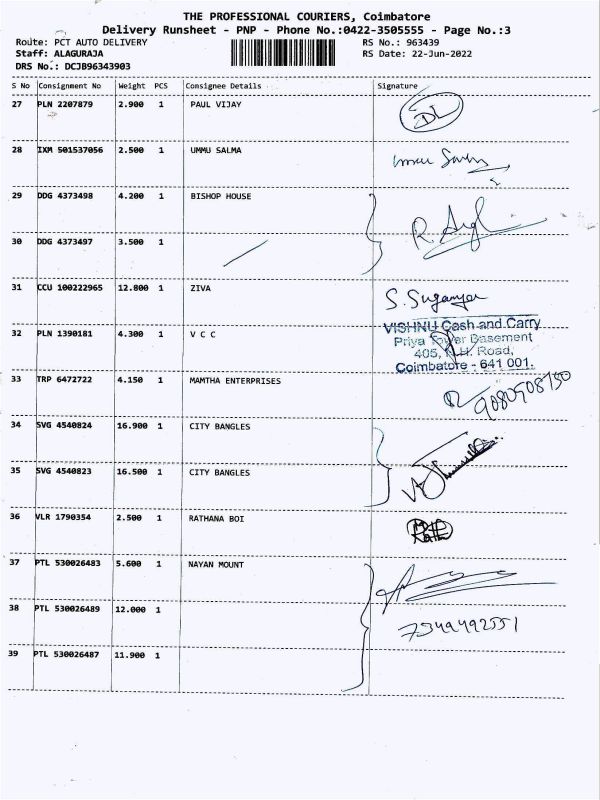 THE PROFESSIONAL COURIERS, Coimbatore
Delivery Runsheet - PNP - Phone No.:0422-3505555 - Page No.:3
Route: PCT AUTO DELIVERY RS No.: 963439
Staff: ALAGURAJA RS Date: 22-Jun-2022
DRS No.: DCJB96343903
S No Consignment No Weight PCS Consignee Details Signature
27 PLN 2207879 2.900 1 PAUL VIJAY
28 IXM 501537056 2.500 1 UMMU SALMA
29 DDG 4373498 4.200 1 BISHOP HOUSE
30 DDG 4373497 3.500 1
31 CCU 100222965 12.800 1 ZIVA S. Suganya
32 PLN 1390181 4.300 1 V C C
VISHNU Cash and Carry
Priya Tower Basement
405, N.H. Road,
Coimbatore - 641 001.
33 TRP 6472722 4.150 1 MAMTHA ENTERPRISES
34 SVG 4540824 16.900 1 CITY BANGLES
35 SVG 4540823 16.500 1 CITY BANGLES
36 VLR 1790354 2.500 1 RATHANA BOI
37 PTL 530026483 5.600 1 NAYAN MOUNT
38 PTL 530026489 12.000 1 7349492551
39 PTL 530026487 11.900 1